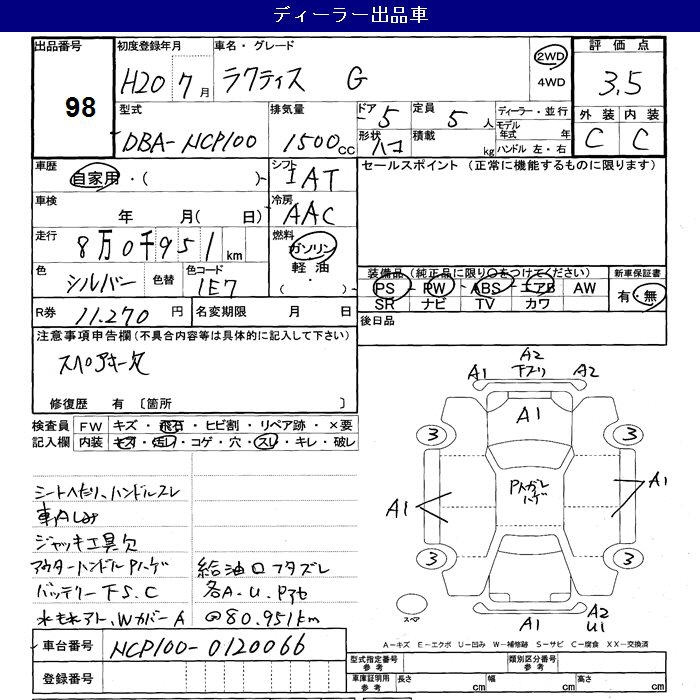 ディーラー出品車
出品番号
98
初度登録年月
H20 7月
車名・グレード
ラクティス G
2WD
4WD
評価点
3.5
外装 内装
C C
型式
DBA-NCP100
排気量
1500cc
ドア
5
形状
ハコ
定員
5人
積載
kg
ディーラー・並行
モデル年式 年
ハンドル 左・右
車歴
自家用・( )
シフト
IAT
セールスポイント (正常に機能するものに限ります)
車検
年 月( 日)
冷房
AAC
走行
8万0千951km
燃料
ガソリン
軽油
・( )
色
シルバー
色替
色コード
1E7
装備品(純正品に限り○をつけてください)
PS PW ABS エアB AW
SR ナビ TV カワ
新車保証書
有・無
R券
11,270円
名変期限 月 日
後日品
注意事項申告欄(不具合内容等は具体的に記入して下さい)
スペアキー欠
修復歴 有 〔箇所 〕
検査員
記入欄
FW キズ・飛石・ヒビ割・リペア跡・×要
内装 キズ・汚レ・コゲ・穴・スレ・キレ・破レ
シートへたり、ハンドルスレ
車Aしみ
ジャッキ工具欠
アウターハンドルPハゲ
バッテリー下S.C
水もれアト、WカバーA
給油口フタズレ
各A.U.Pアセ
@80.951km
A1 A2 A2
下ズリ
A1
3 3
Pハガレ
ハゲ
A1 A1
3 3
スペア
A1 A2
U1
A-キズ E-エクボ U-凹み W-補修跡 S-サビ C-腐食 XX-交換済
車台番号
NCP100-0120066
登録番号
型式指定番号
参考
類別区分番号
参考
車庫証明用
参考
長さ cm 幅 cm 高さ cm